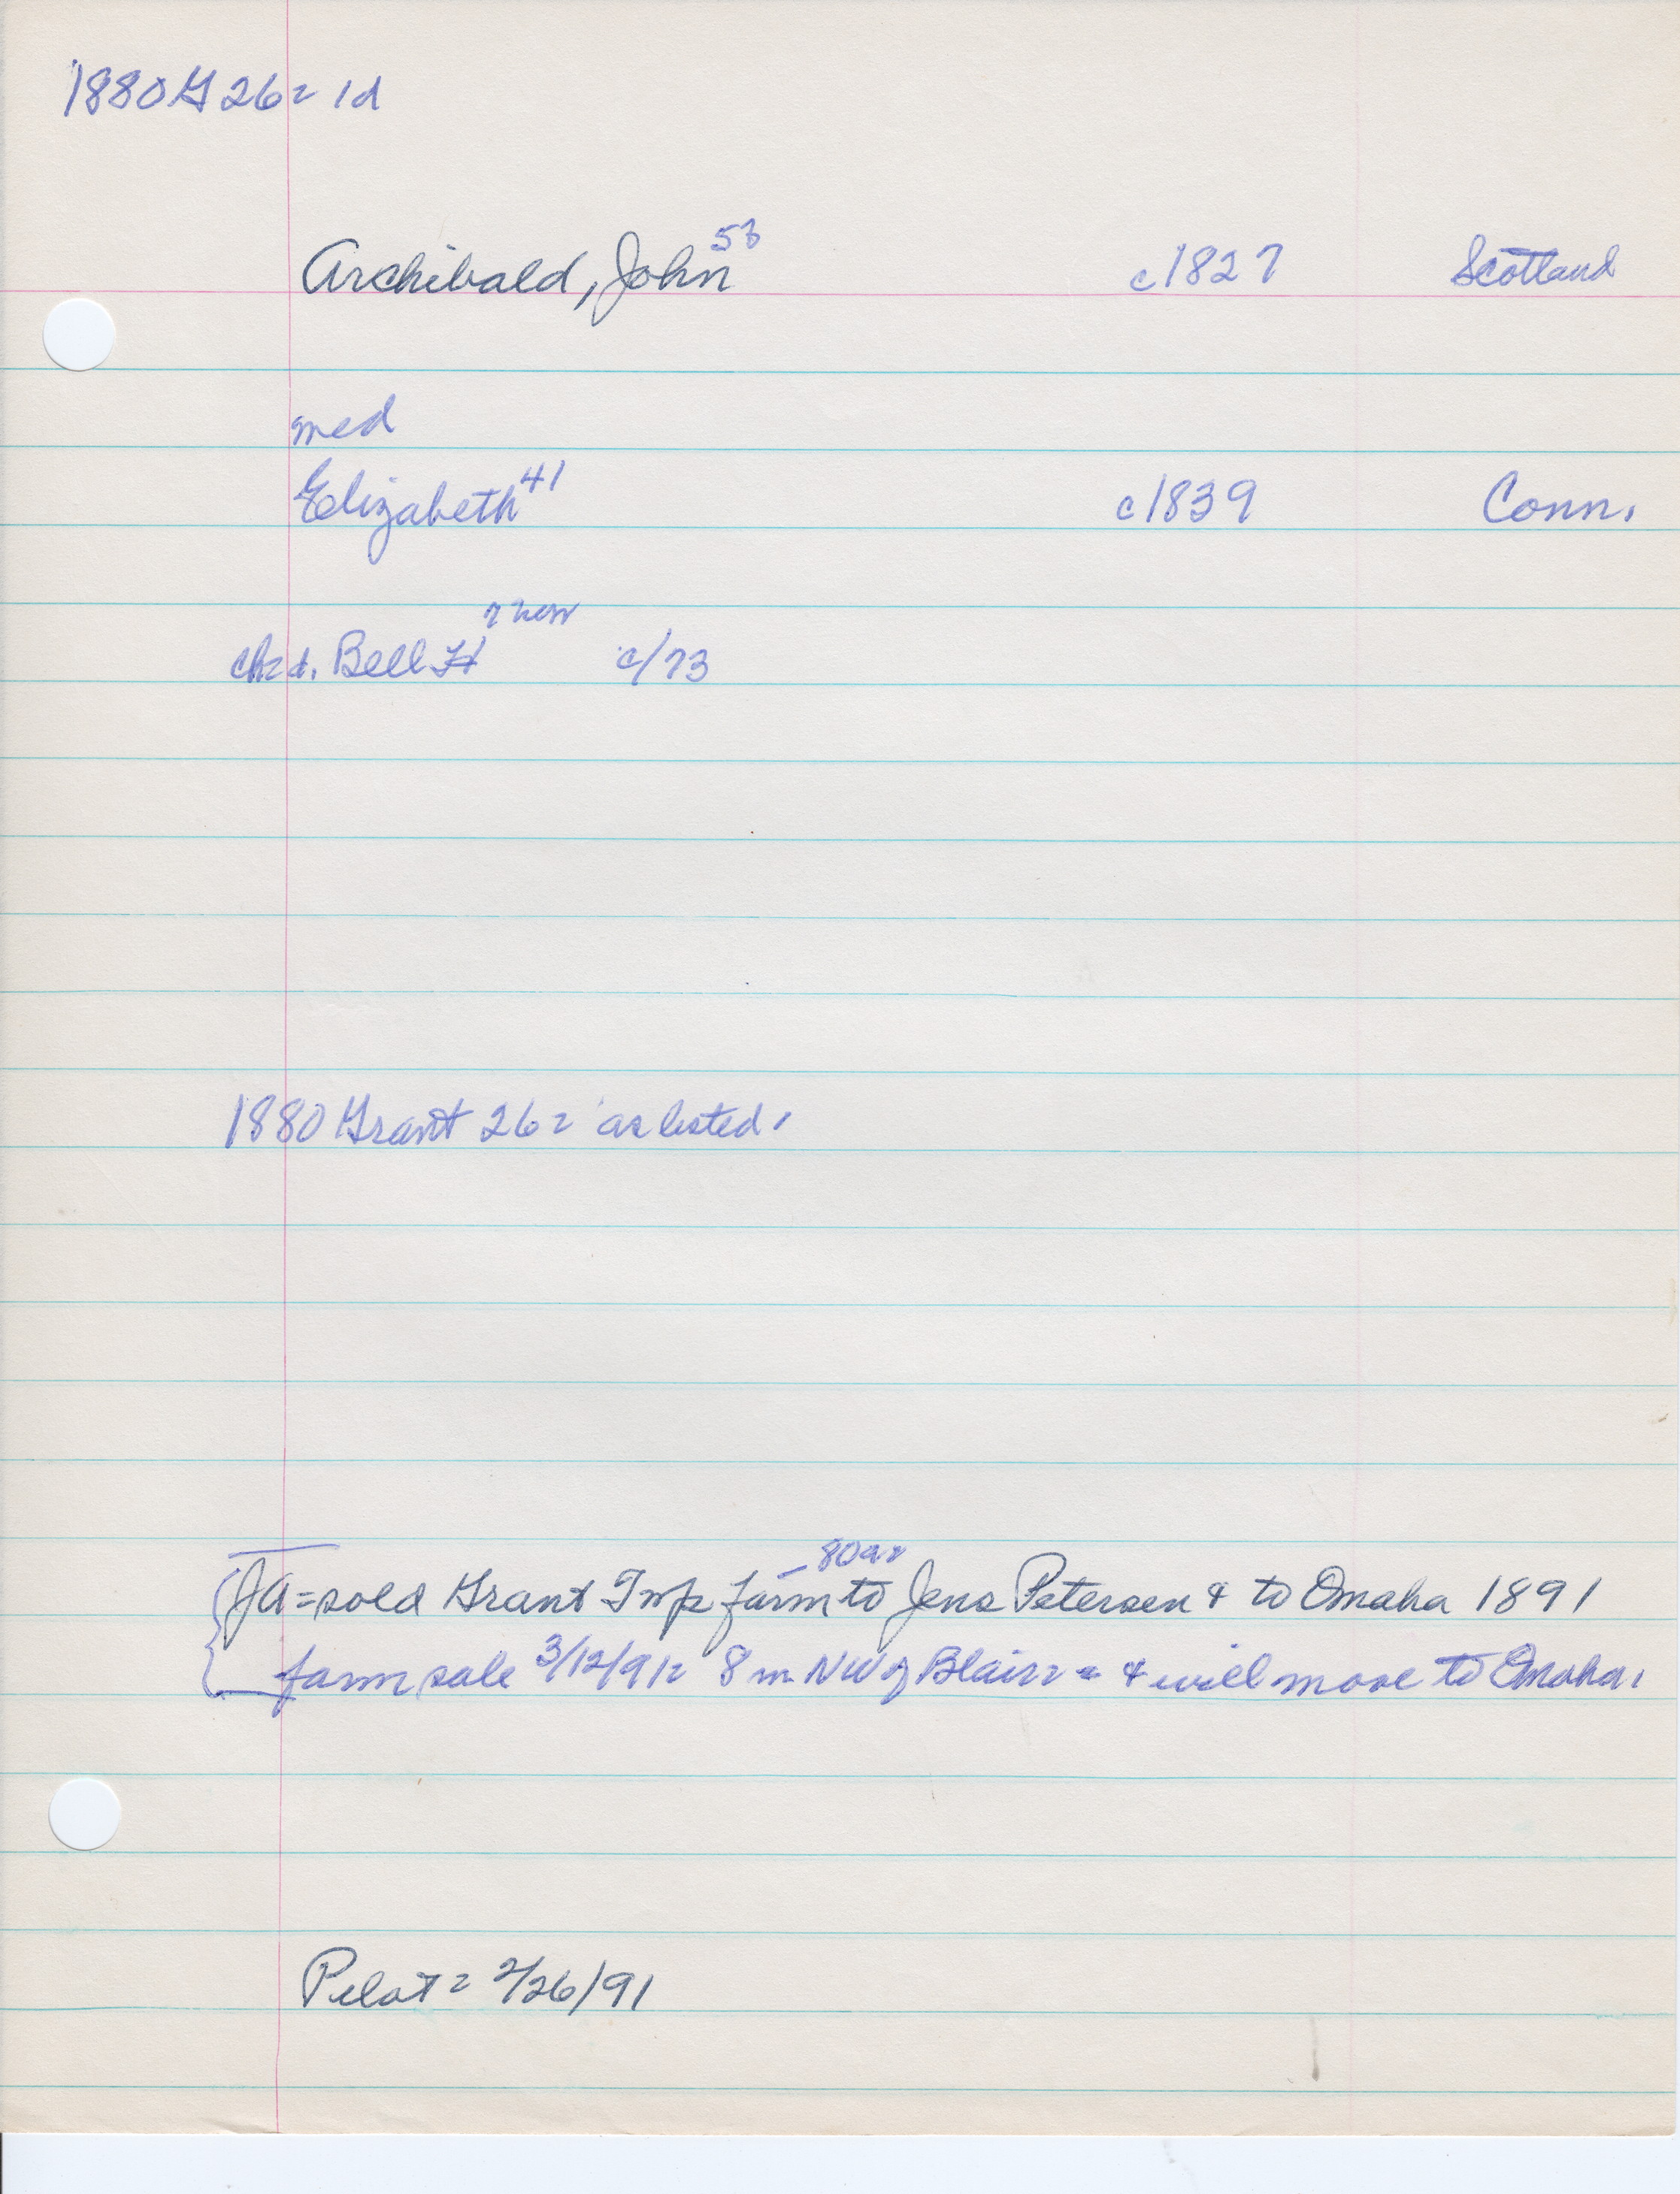 1880 G 26= 1d
Archibald, John 53 c1827 Scotland
med
Elizabeth 41 c1839 Conn.
7
chd. Bell H c/73
1880 Grant 26= as listed.
80ac
JA=sold Grant Twp farm to Jens Petersen & to Omaha 1891
farm sale 3/12/91= 8 m NW of Blair= & will move to Omaha.
Pilot= 2/26/91